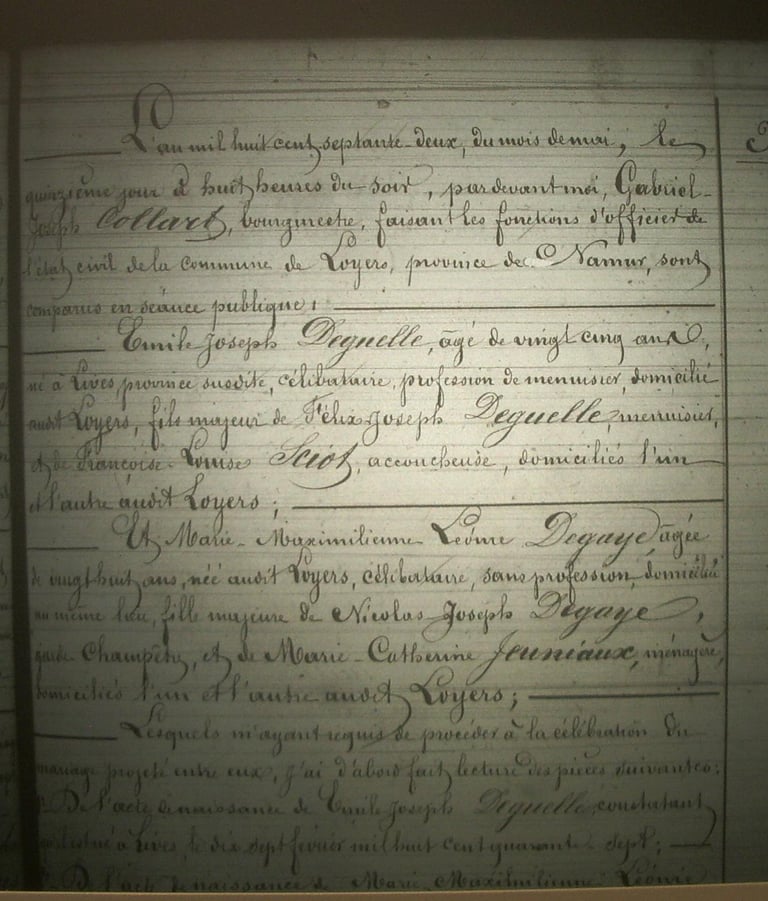 L'an mil huit cent septante-deux, du mois de mai, le
quinzième jour à huit heures du soir, pardevant moi, Gabriel-
Joseph Collart, bourgmestre, faisant les fonctions d'officier de
l'état civil de la commune de Loyers, province de Namur, sont
comparus en séance publique;
Emile Joseph Deguelle, âgé de vingt cinq ans,
né à Lives, province susdite, célibataire, profession de menuisier, domicilié
audit Loyers, fils majeur de Félix-Joseph Deguelle, menuisier,
et de Françoise-Louise Sciot, accoucheuse, domiciliés l'un
et l'autre audit Loyers;
Et Marie-Maximilienne Léonie Degaye, âgée
de vingt huit ans, née audit Loyers, célibataire, sans profession, domiciliée
au même lieu, fille majeure de Nicolas-Joseph Degaye,
garde Champêtre, et de Marie-Catherine Jeuniaux, ménagère,
domiciliés l'un et l'autre audit Loyers;
Lesquels m'ayant requis de procéder à la célébration du
mariage projeté entre eux, j'ai d'abord fait lecture des pièces suivantes:
1° De l'acte de naissance de Emile Joseph Deguelle, constatant
qu'il est né à Lives, le dix sept février mil huit cent quarante-sept;
2° De l'acte de naissance de Marie-Maximilienne Léonie